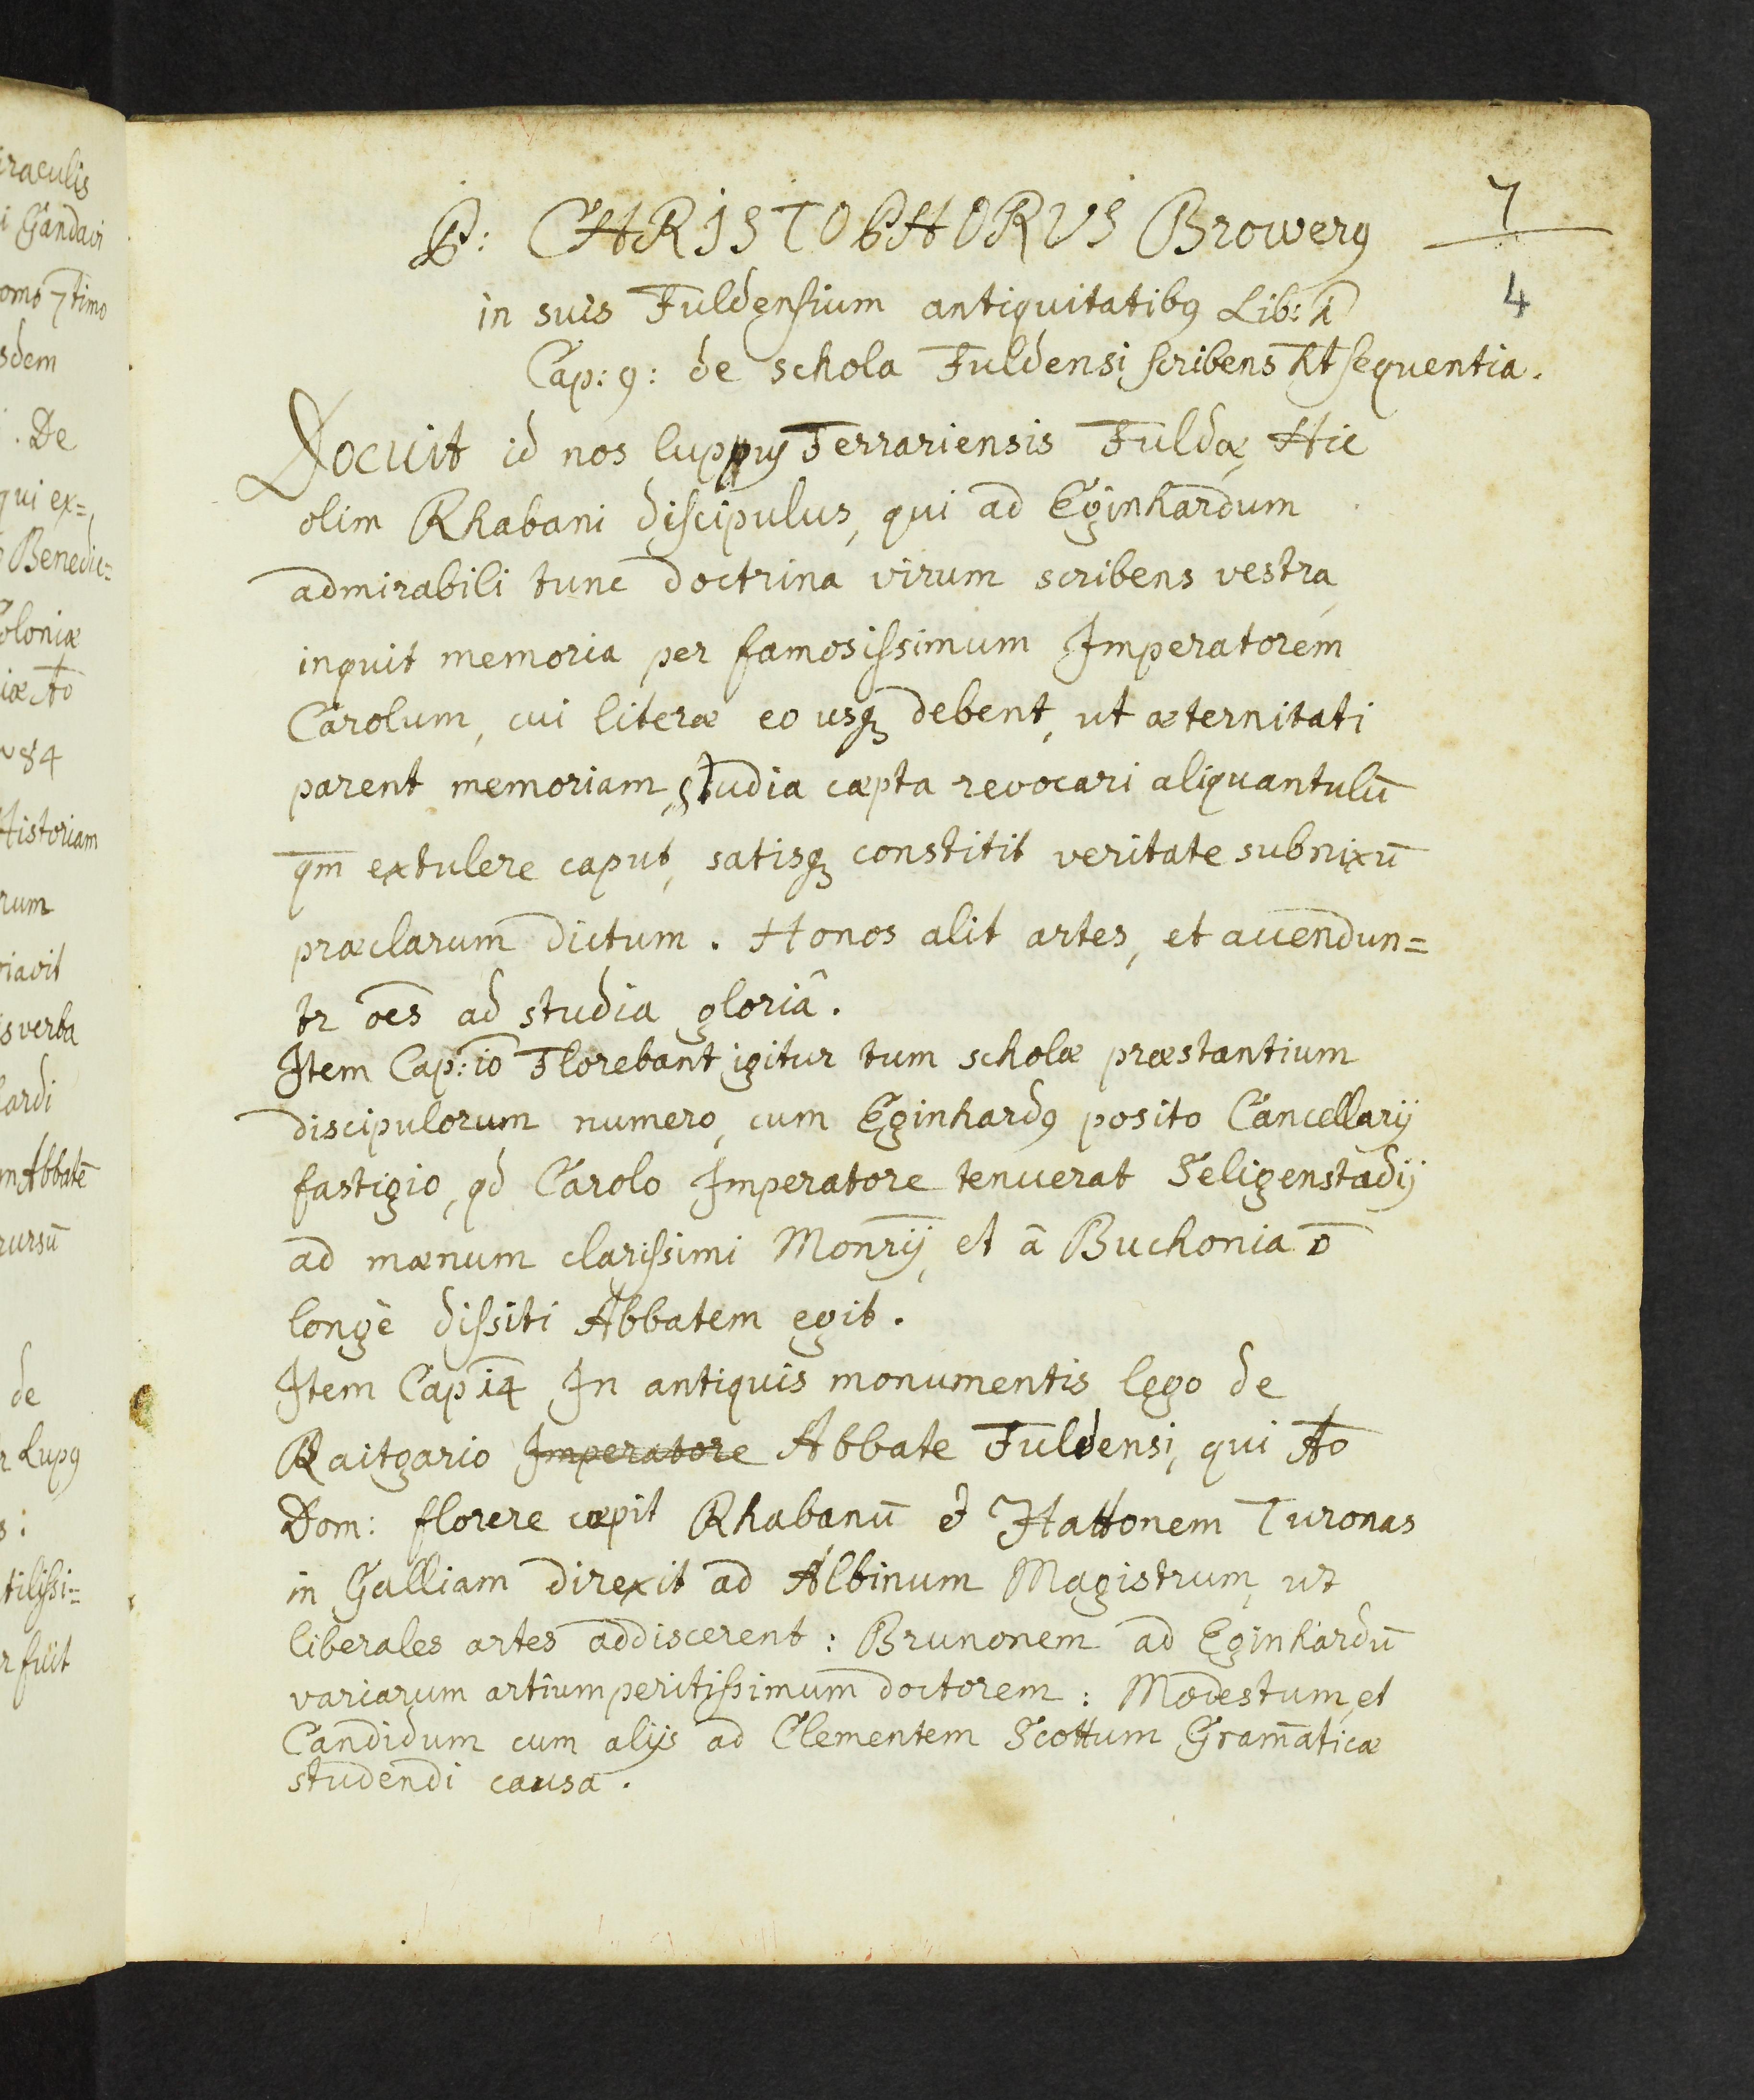 7
P: CHRISTOPHORVS Browerꝯ
4
in suis Fuldensium antiquitatibꝯ Lib: 1
Cap: 9: de schola Fuldensi scribens ht sequentia.
Docuit id nos luppꝯ Ferrariensis Fuldæ, Hic
olim Rhabani discipulus, qui ad Eginhardum
admirabili tunc doctrina virum scribens vestra,
inquit memoria per famosissimum Imperatorem
Carolum, cui literæ eo usqꝫ debent, ut æternitati
parent memoriam, studia cæpta revocari aliquantulū
qm̄ extulere caput, satisqꝫ constitit veritate subnixū
præclarum dictum. Honos alit artes, et accendun=
tr oēs ad studia gloriâ.
Item Cap: 10 Florebant igitur tum scholæ præstantium
discipulorum numero, cum Eginhardꝯ posito Cancellarij
fastigio, qd Carolo Imperatore tenuerat Seligenstadij
ad mænum clarissimi Monrīj, et â Buchonia ō
longè dissiti Abbatem egit.
Item Cap 14 In antiquis monumentis lego de
Raitgario Imperatore Abbate Fuldensi, qui Āo
Dom: florere cæpit Rhabanū & Hattonem Turonas
in Galliam direxit ad Albinum Magistrum, ut
liberales artes addiscerent: Brunonem ad Eginhardū
variarum artium peritissimum doctorem: Modestum, et
Candidum cum alijs ad Clementem Scottum Gram̄aticæ
studendi causa.